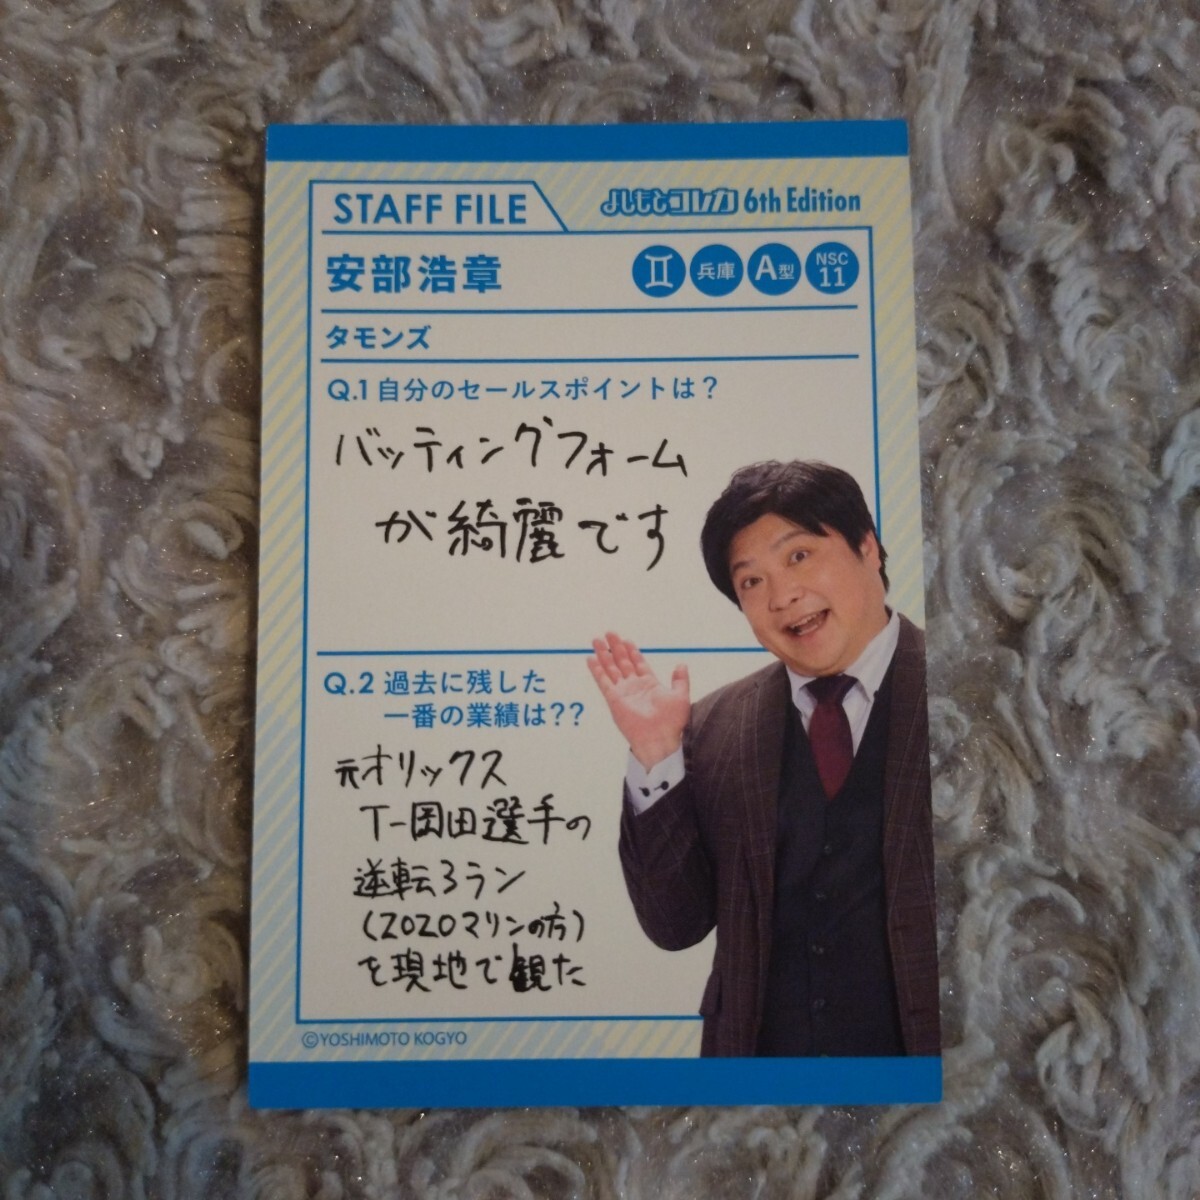 STAFF FILE
よしもとコレカ 6th Edition
安部浩章
♊ 兵庫 A型 NSC 11
タモンズ
Q.1 自分のセールスポイントは?
バッティングフォーム
が綺麗です
Q.2 過去に残した
一番の業績は??
元オリックス
T-岡田選手の
逆転3ラン
(2020マリンの方)
を現地で観た
©YOSHIMOTO KOGYO